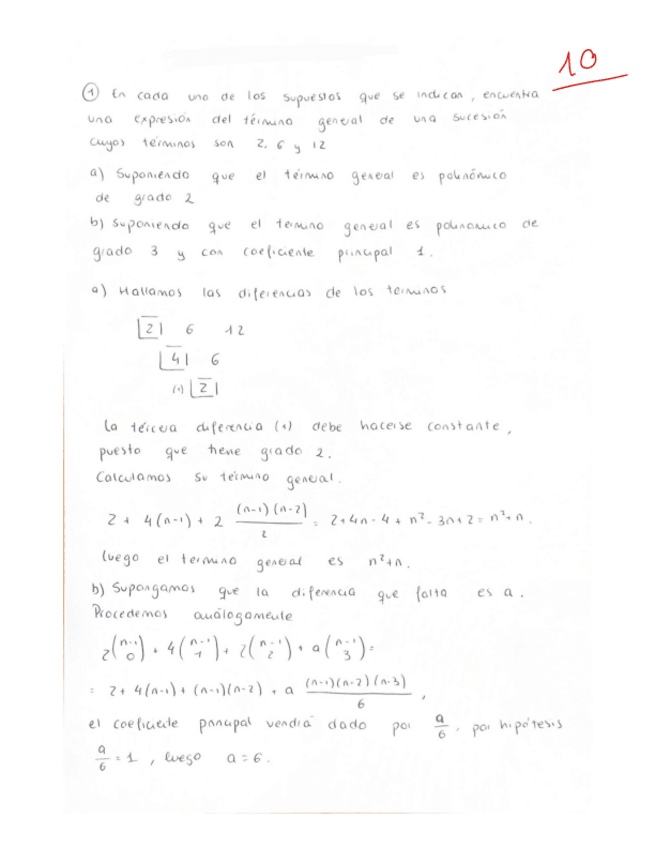 10
① En cada uno de los supuestos que se indican, encuentra
una expresión del término general de una sucesión
cuyos términos son 2, 6 y 12
a) Suponiendo que el término general es polinómico
de grado 2
b) Suponiendo que el término general es polinomico de
grado 3 y con coeficiente principal 1.
a) Hallamos las diferencias de los terminos
2 6 12
4 6
(*) 2
La tércera diferencia (*) debe hacerse constante,
puesto que tiene grado 2.
Calculamos su término general.
2 + 4(n-1) + 2 (n-1)(n-2)/2 = 2+4n-4+n²-3n+2 = n²+n.
luego el termino general es n²+n.
b) Supongamos que la diferencia que falta es a.
Procedemos análogamente
2(n-1 0) + 4(n-1 1) + 2(n-1 2) + a(n-1 3) =
= 2+4(n-1)+(n-1)(n-2) + a (n-1)(n-2)(n-3)/6 ,
el coeficiente principal vendrá dado por a/6, por hipótesis
a/6 = 1, luego a=6.